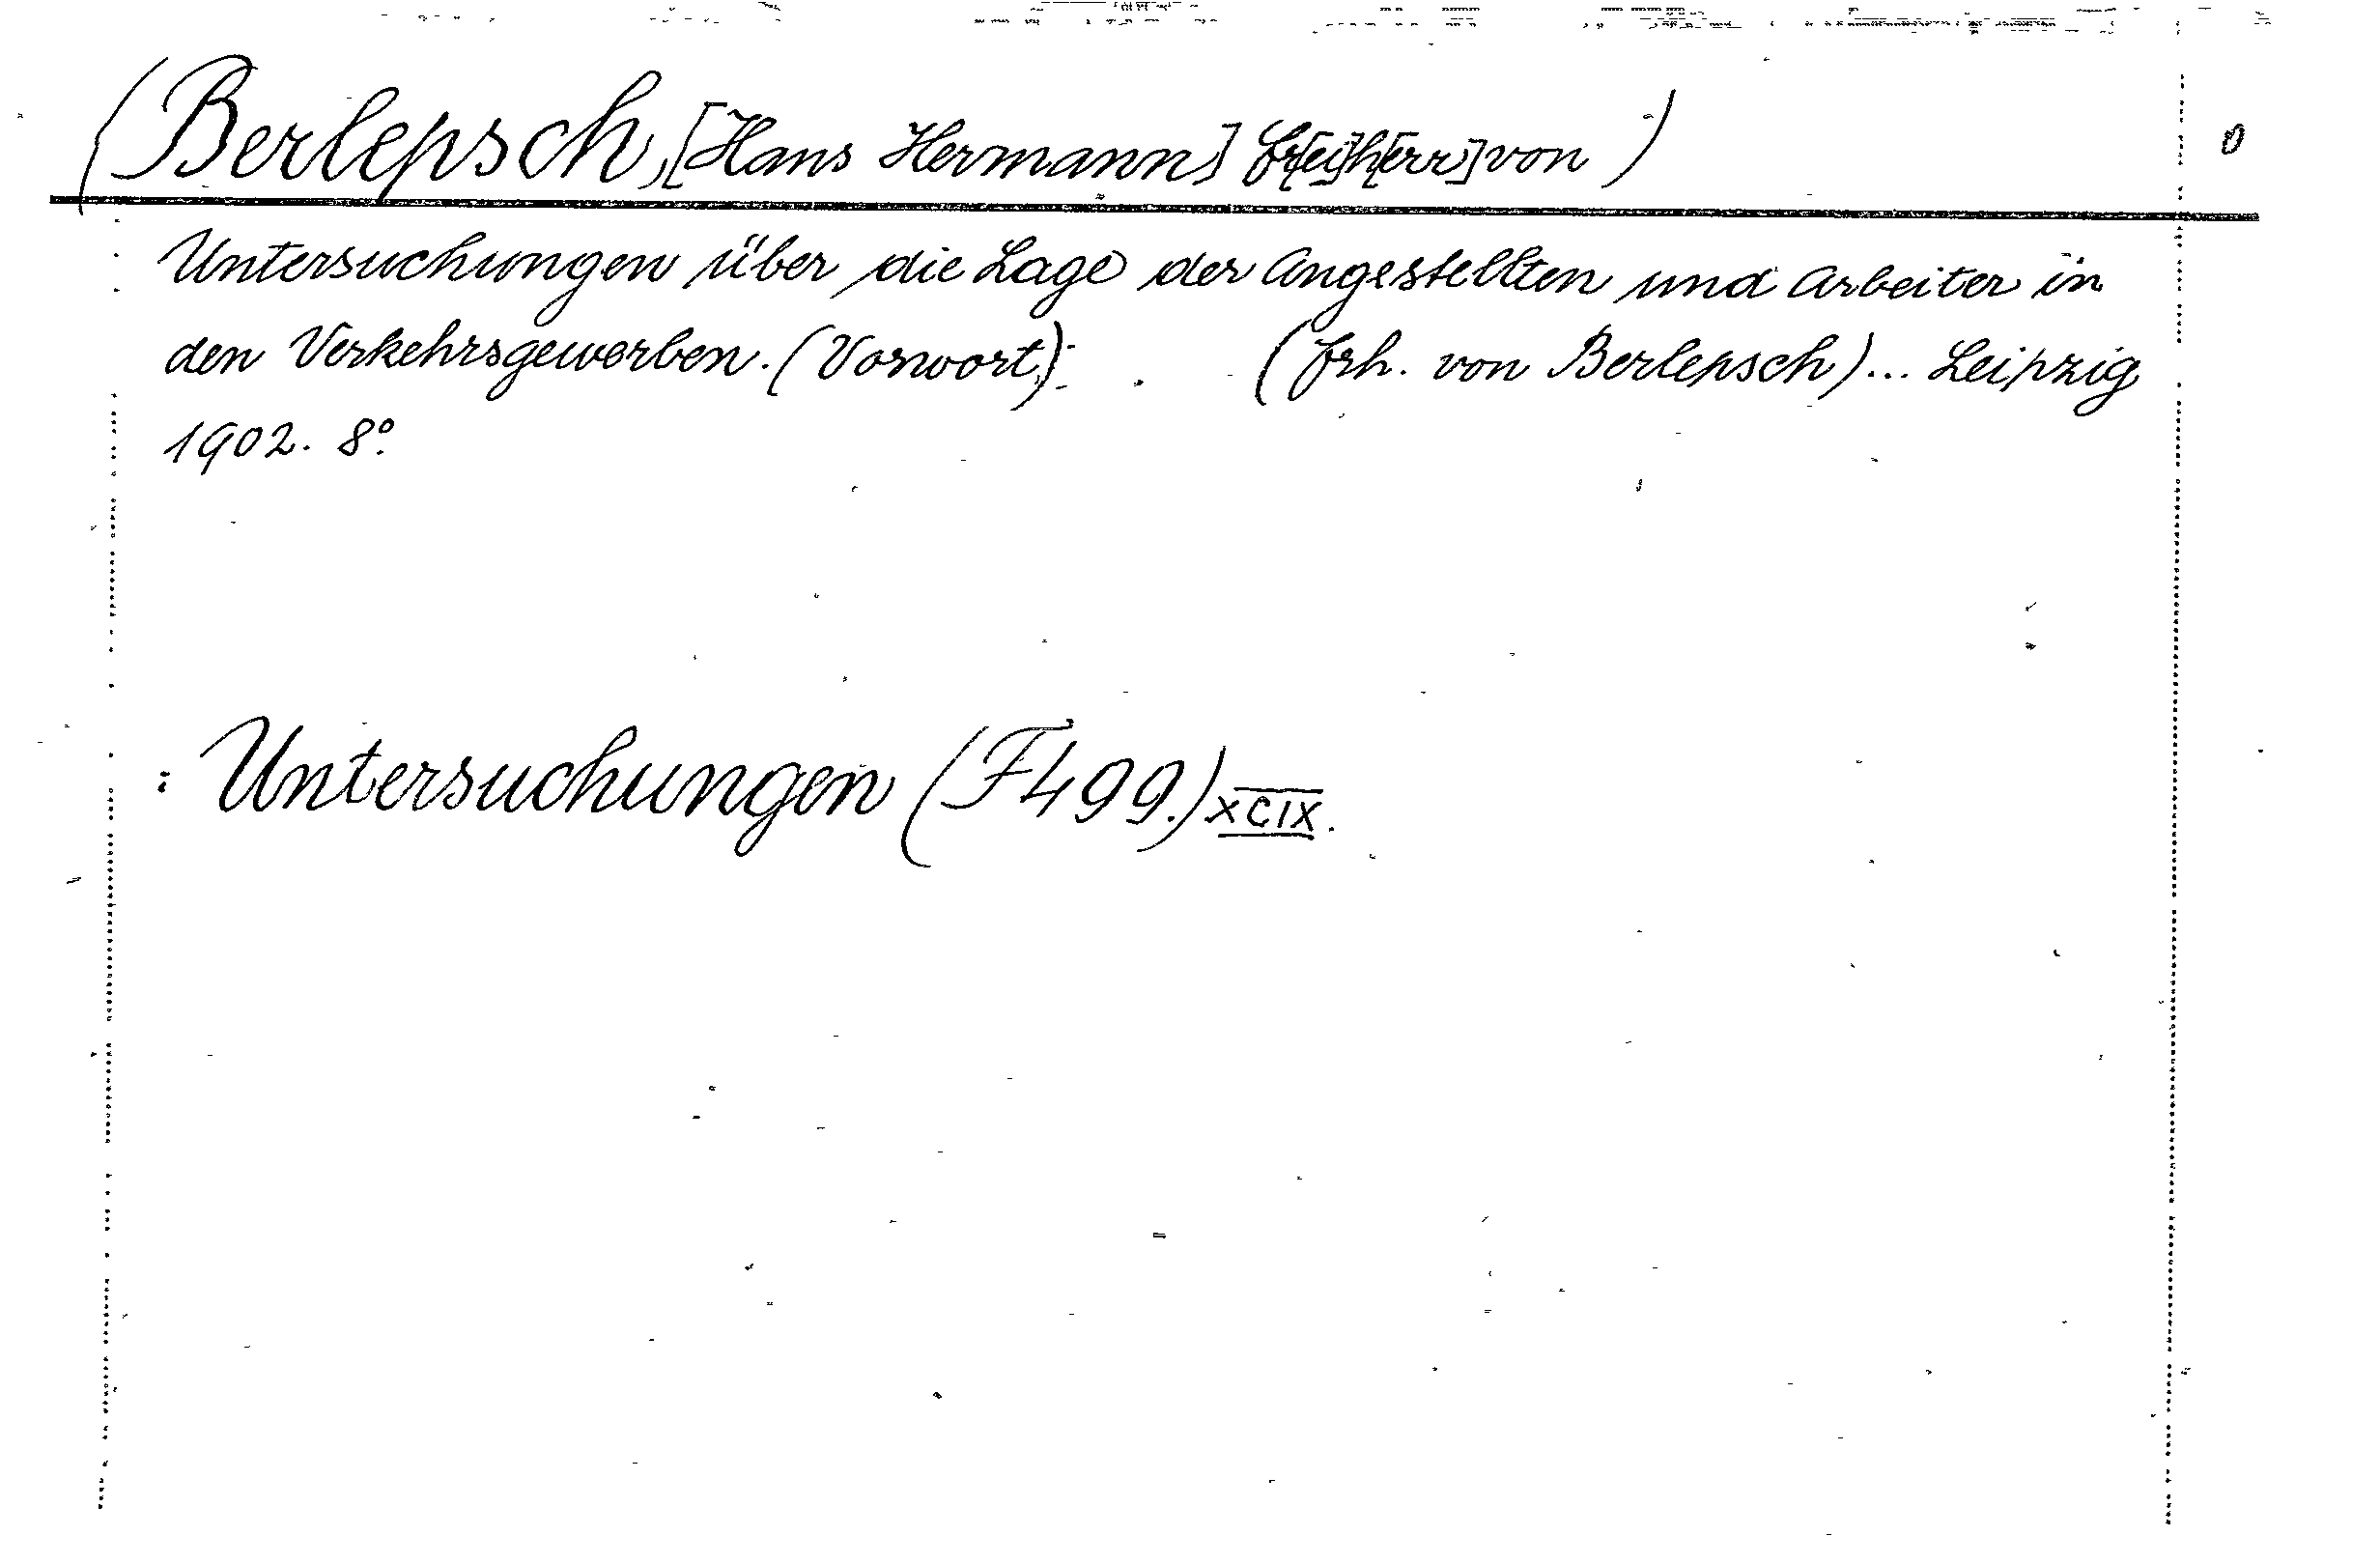 (Berlepsch, [Hans Hermann] Fr[ei]h[err] von) 0
Untersuchungen über die Lage der Angestellten und Arbeiter in
den Verkehrsgewerben. (Vorwort): (Frh. von Berlepsch)... Leipzig
1902. 8°.
: Untersuchungen (F 499.) XCIX.